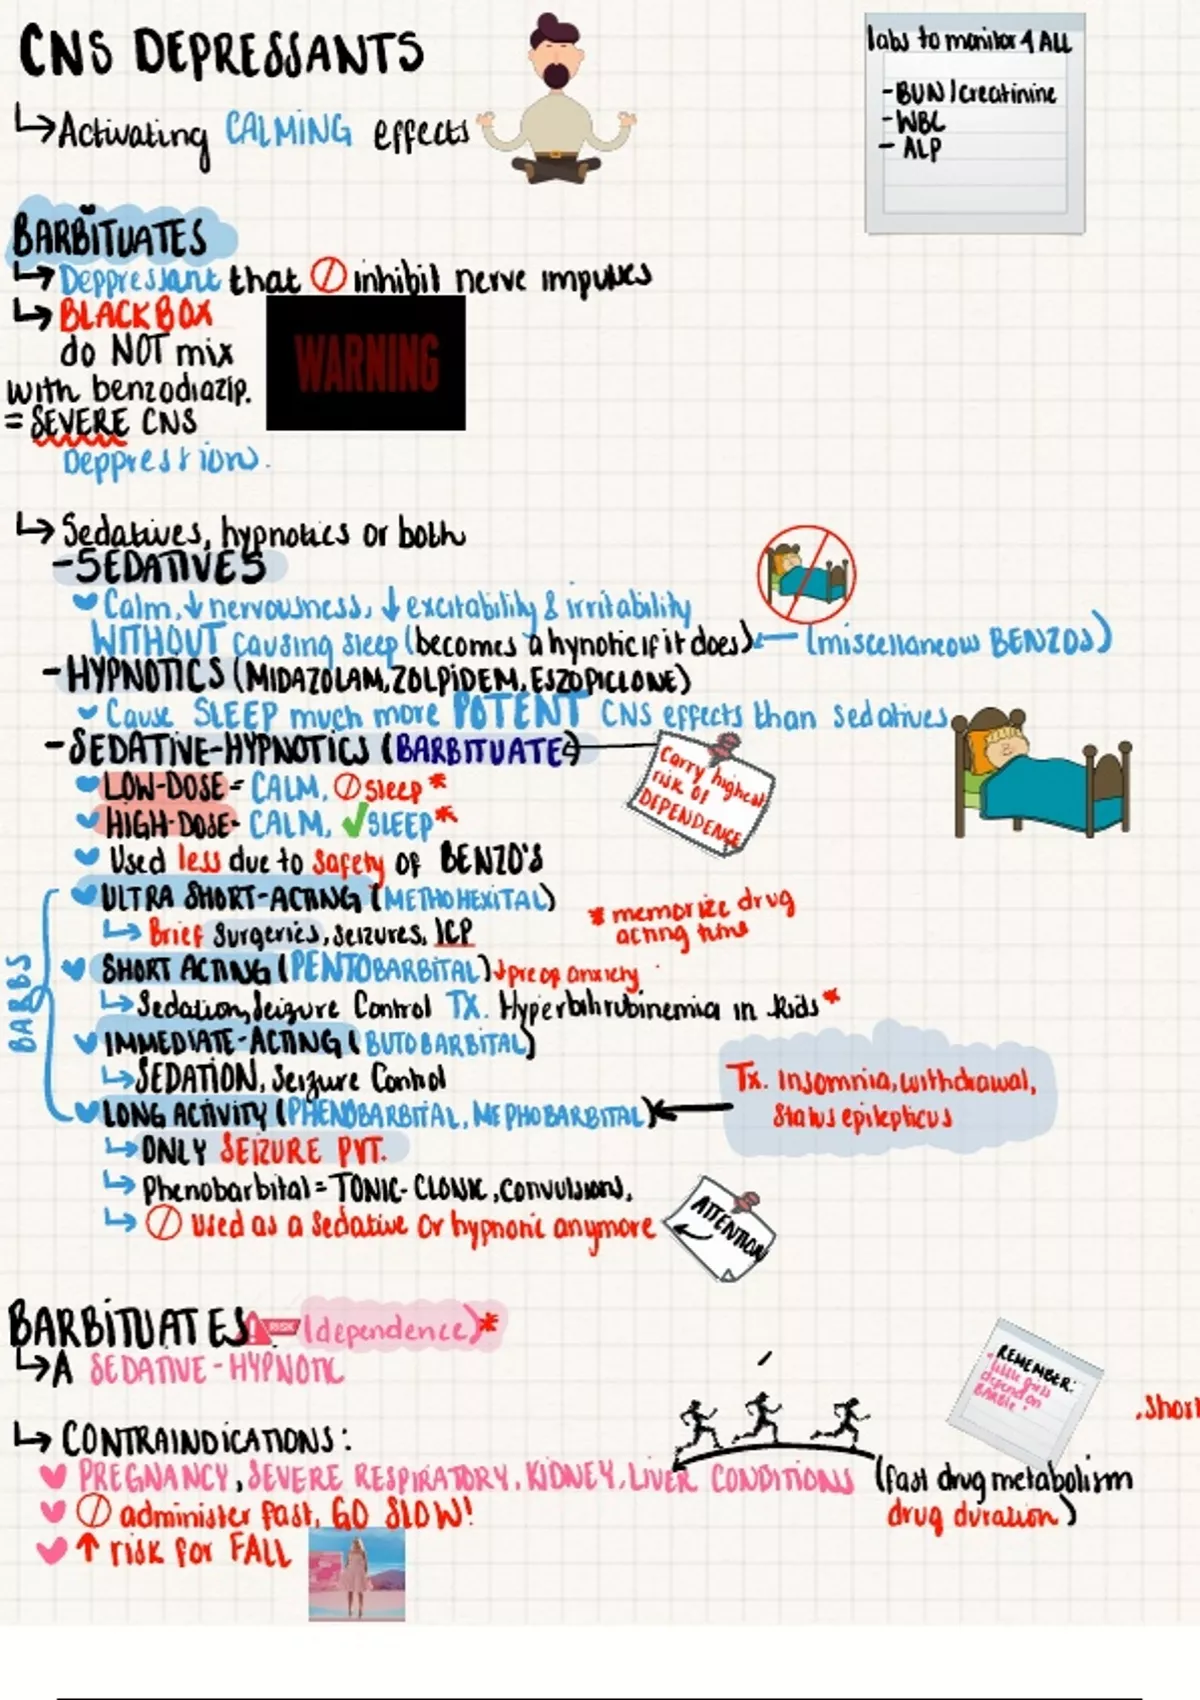 CNS DEPRESSANTS
↳Activating CALMING effects
labs to monitor 4 ALL
-BUN/creatinine
-WBC
- ALP
BARBITUATES
↳ Deppressant that inhibit nerve impulses
↳ BLACKBOX
do NOT mix
with benzodiazip.
= SEVERE CNS
Deppression.
WARNING
↳ Sedatives, hypnotics or both
-SEDATIVES
Calm, ↓ nervousness, ↓ excitability & irritability
WITHOUT causing sleep (becomes a hynotic if it does) ← (miscellaneous BENZOS)
- HYPNOTICS (MIDAZOLAM, ZOLPIDEM, ESZOPICLONE)
Cause SLEEP much more POTENT CNS effects than sedatives
- SEDATIVE-HYPNOTICS (BARBITUATE)
Carry highest
risk of
DEPENDENCE
LOW-DOSE = CALM, sleep *
HIGH-DOSE- CALM, ✓SLEEP*
Used less due to safety of BENZO'S
ULTRA SHORT-ACTING (METHOHEXITAL)
↳ Brief surgeries, seizures, ICP
* memorize drug
acting time
BARBS
SHORT ACTING (PENTOBARBITAL) ↓preop anxiety
↳Sedation, Seizure Control TX. Hyperbilirubinemia in kids*
IMMEDIATE-ACTING (BUTOBARBITAL)
↳SEDATION, Seizure Control
LONG ACTIVITY (PHENOBARBITAL, MEPHOBARBITAL)
Tx. Insomnia, withdrawal,
Status epilepticus
↳ONLY SEIZURE PVT.
↳ Phenobarbital = TONIC-CLONIC, convulsions,
↳ Used as a sedative or hypnotic anymore
ATTENTION
BARBITUATES RISK (dependence)*
↳A SEDATIVE-HYPNOTIC
REMEMBER:
"little girls
depend on
BARBIE"
.Short
↳ CONTRAINDICATIONS:
PREGNANCY, SEVERE RESPIRATORY, KIDNEY, LIVER CONDITIONS (fast drug metabolism
drug duration)
administer fast, GO SLOW!
↑ risk for FALL